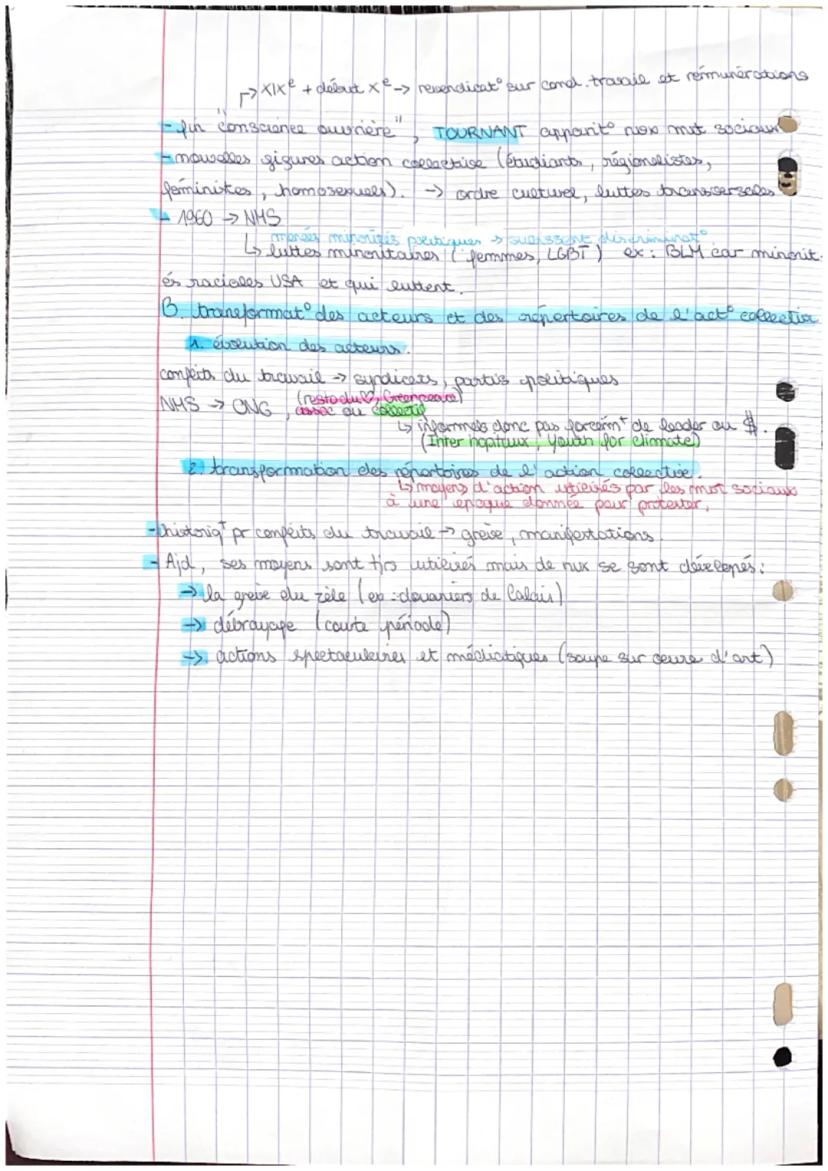 ↱ XIXe + début Xe → revendicat° sur cond. travail et rémunérations
- fin "conscience ouvrière", TOURNANT apparit° nvx mvt sociaux
- nouvelles figures action collective (étudiants, régionalistes,
féministes, homosexuels). → ordre culturel, luttes transversales
- 1960 → NMS
menées minorités politiques → subissent discriminat°
↳ luttes minoritaires (femmes, LGBT) ex : BLM car minorit
és raciales USA et qui luttent.
B. transformat° des acteurs et des répertoires de l'act° collective
1. évolution des acteurs.
conflits du travail → syndicats, partis politiques
(resto du ♡, Greenpeace)
NMS → ONG, assoc ou collectif
↳ informels donc pas forcém^t de leader ou $.
(Inter hopitaux, Youth for climate)
2. transformation des répertoires de l'action collective.
↳ moyens d'action utilisés par les mvt sociaux
à une époque donnée pour protester.
- historiq^t pr conflits du travail → grève, manifestations.
- Ajd, ses moyens sont tjrs utilisés mais de nvx se sont dévelopés :
→ la grève du zèle (ex : douaniers de Calais)
→ débrayage (courte période)
→ actions spectaculaires et médiatiques (soupe sur oeuvre d'art)